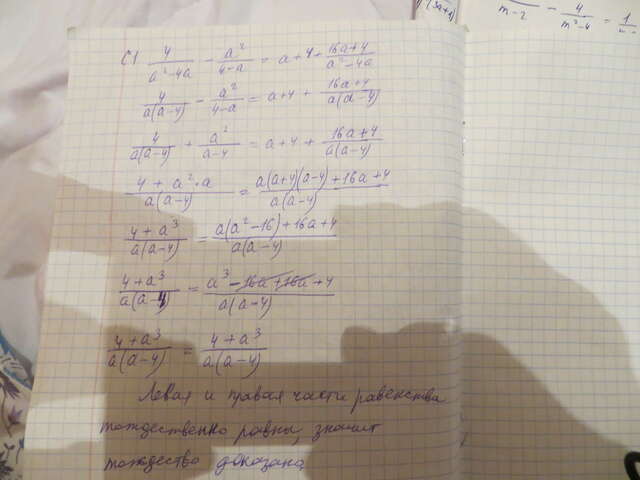 (3a+1)
m-2 - 4/(m²-4) = 1/
C1 4/(a²-4a) - a²/(4-a) = a+4+ (16a+4)/(a²-4a)
4/(a(a-4)) - a²/(4-a) = a+4 + (16a+4)/(a(a-4))
4/(a(a-4)) + a²/(a-4) = a+4 + (16a+4)/(a(a-4))
(4+a²·a)/(a(a-4)) = (a(a+4)(a-4)+16a+4)/(a(a-4))
(4+a³)/(a(a-4)) = (a(a²-16)+16a+4)/(a(a-4))
(4+a³)/(a(a-4)) = (a³-16a+16a+4)/(a(a-4))
(4+a³)/(a(a-4)) = (4+a³)/(a(a-4))
Левая и правая части равенства
тождественно равны, значит
тождество доказано.